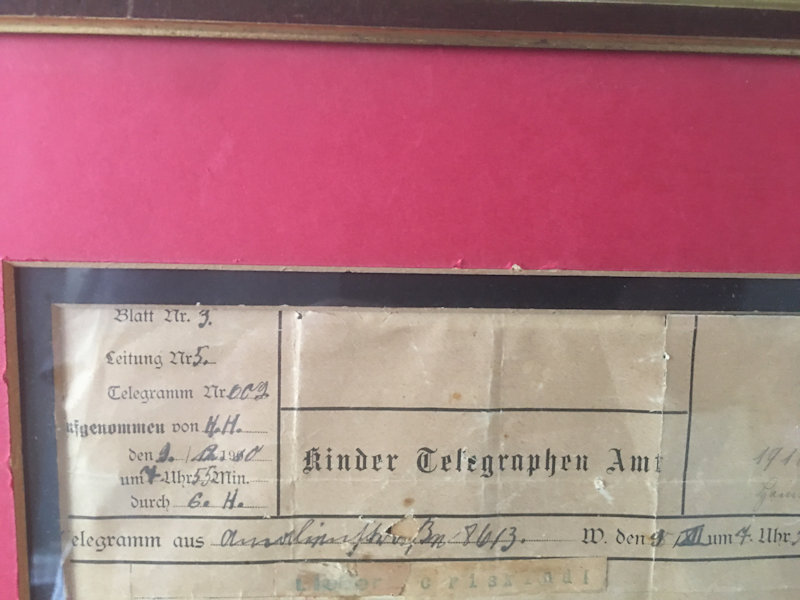 Blatt Nr. 3.
Leitung Nr 5.
Telegramm Nr 002
ufgenommen von H. H.
den 9. /12. 1910
um 4 Uhr 55 Min.
durch G. H.
Kinder Telegraphen Amt
191
elegramm aus Amalienstraße 86/3. W. den 9 /XII um 4. Uhr